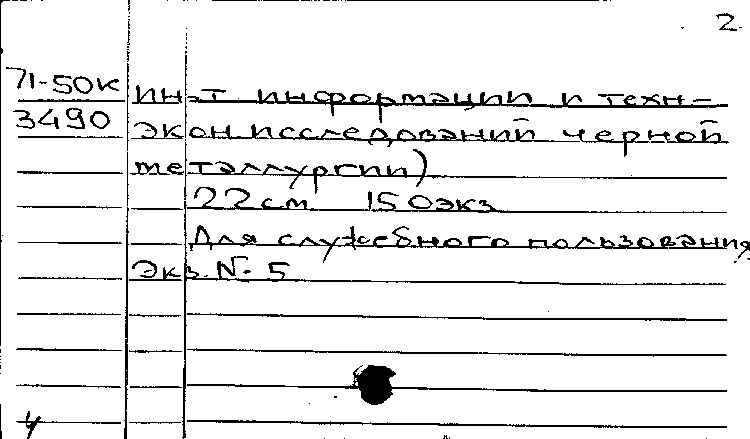 2
71-50к ин-т информации и техн-
3490 экон исследований черной
металлургии)
22 см 150 экз
Для служебного пользования
Экз. N- 5
4